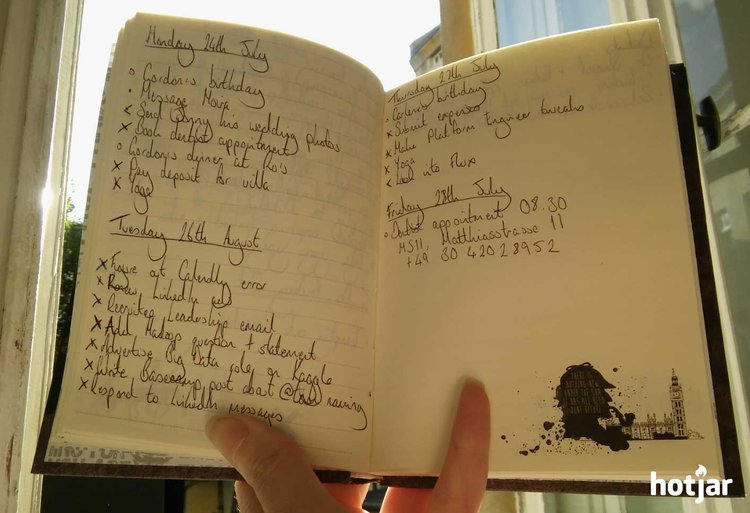 Monday 24th July
o Gordon's birthday
• Message Moira
< Send Jonny his wedding photos
x Book dentist appointment
o Gordon's dinner at Ro's
x Pay deposit for villa
x Yoga
Tuesday 26th August
x Figure out Calendly error
x Renew LinkedIn ads
x Recruitee Leadership email
x Add Hadoop question + statement
x Advertise Big Data role on Kaggle
x Write Basecamp post about naming
x Respond to LinkedIn messages
Thursday 27th July
o birthday
x Submit expenses
x Make Platform Engineer tweaks
x Yoga
< Look into Flux
Friday 28th July
o Dentist appointment 08.30
MS11, Matthiasstrasse 11
+49 30 420 28952
THERE IS
NOTHING NEW
UNDER THE SUN
IT HAS ALL BEEN
DONE BEFORE
hotjar